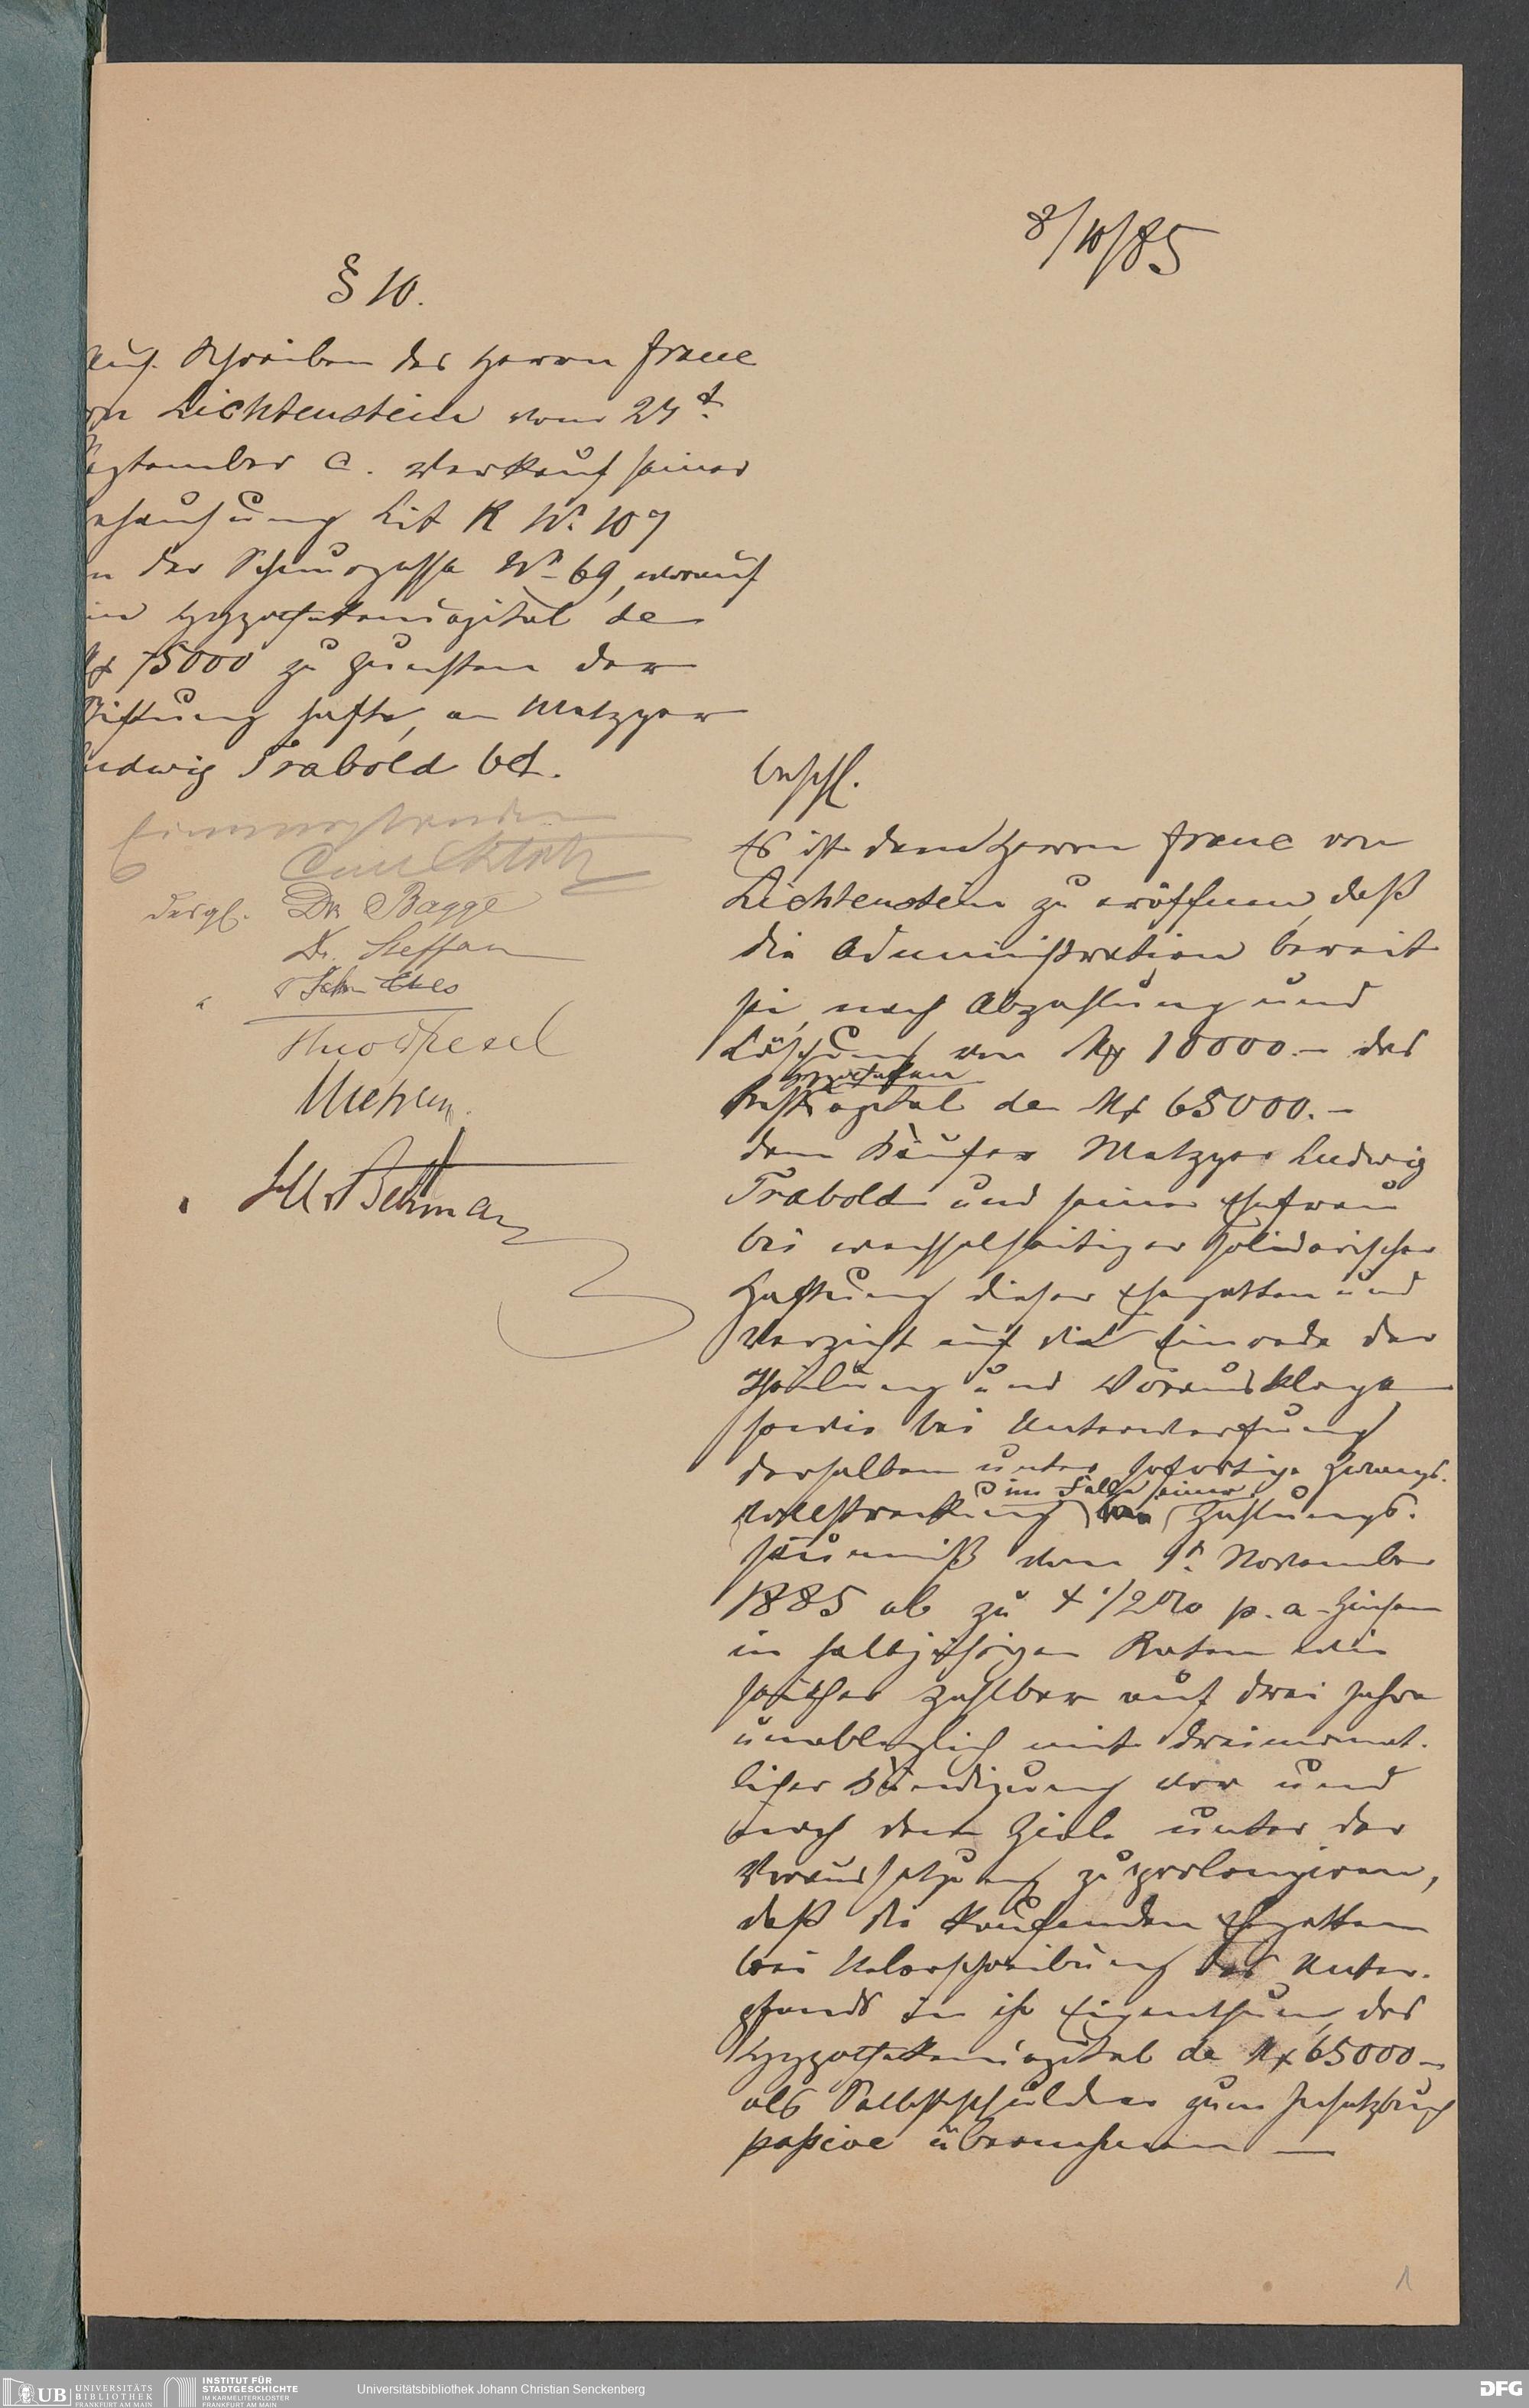 8/10/85
§ 10.
Auf Schreiben des Herrn Franc
von Lichtenstein vom 24t.
September c. Verkauf seiner
Behausung Lit K No. 107
in der Schnurgasse No. 69, worauf
ein Hypothekencapital de
M 75000 zu Gunsten der
Stiftung hafte, an Metzger
Ludwig Trabold bet.
Einverstanden
desgl. Dr. Bagge
Dr. Steffan
Beschl.
Es ist dem Herrn Franc von
Lichtenstein zu eröffnen, daß
die Administration bereit
sei, nach Abzahlung und
Löschung von M 10000.- das
Hypotheken
Restkapital de M 65000.-
dem Käufer Metzger Ludwig
Trabold und seiner Ehefrau
bei wechselseitiger solidarischer
Haftung dieser Ehegatten und
Verzicht auf die Einrede der
Theilung und Vorausklage
sowie bei Unterwerfung
derselben unter sofortige Zwangs-
im Falle einer
vollstreckung bei Zahlungs-
säumniß vom 1t. November
1885 ab zu 4 1/2 % p.a. Zinsen
in halbjährigen Raten wie
seither zahlbar auf drei Jahre
unableglich mit dreimonat-
licher Kündigung vor und
nach dem Ziele unter der
Voraussetzung zu prolongiren,
daß die kaufenden Ehegatten
bei Ueberschreibung des Unter-
pfands in ihr Eigenthum, das
Hypothekencapital de M 65000-
als Selbstschuldner zum Insatzbuch
passive übernehmen —
1
UB UNIVERSITÄTS
BIBLIOTHEK
FRANKFURT AM MAIN
INSTITUT FÜR
STADTGESCHICHTE
IM KARMELITERKLOSTER
FRANKFURT AM MAIN
Universitätsbibliothek Johann Christian Senckenberg
DFG